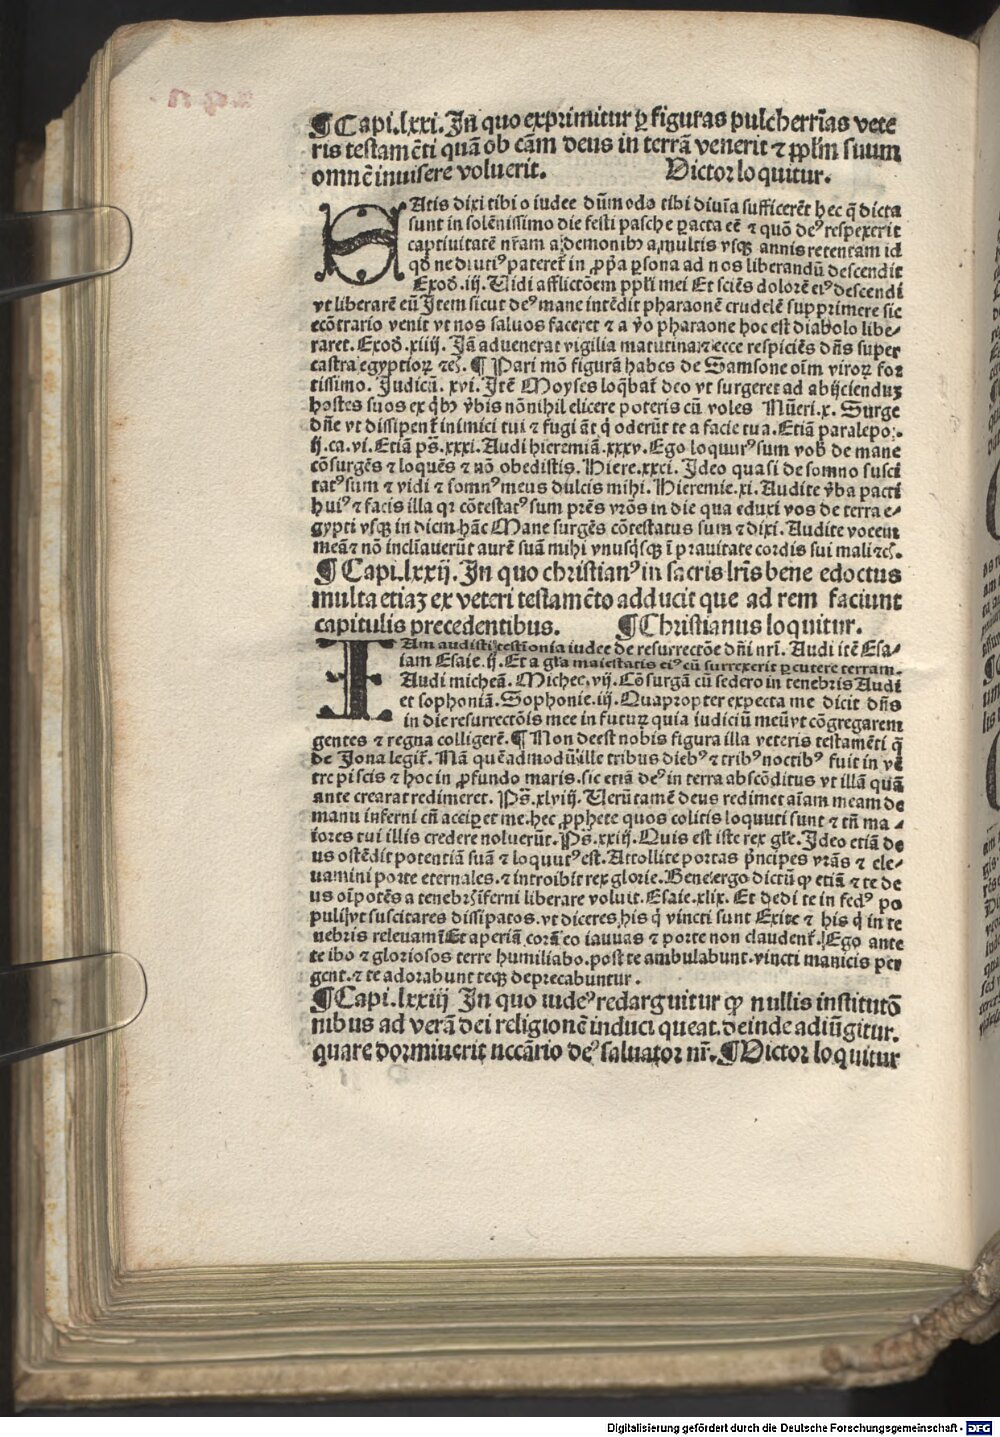 ¶Capi.lxxi. In quo exprimitur ꝑ figuras pulcherrīas vete
ris testamēti quā ob cām deus in terrā venerit ⁊ ꝓplm̄ suum
omnē inuisere voluerit. Victor loquitur.
SAtis dixi tibi o iudee dūmodo tibi diuīa sufficerēt hec q̄ dicta
sunt in solēnissimo die festi pasche ꝑacta eē ⁊ quō deꝰ respexerit
captiuitatē nr̄am a demonibꝫ a multis vsqꝫ annis retentam id
qd̄ ne diutiꝰ pateret̄ in ꝓp̄a ꝑsona ad nos liberandū descendit
Exod̄. iij. Uidi afflictōem ppl̄i mei Et sciēs dolorē eiꝰ descendi
vt liberarē eū Item sicut deꝰ mane intēdit pharaonē crudelē supprimere sic
ecōtrario venit vt nos saluos faceret ⁊ a v̄o pharaone hoc est diabolo libe⸗
raret. Exod̄. xiiij. Iā aduenerat vigilia matutina ⁊ ecce respiciēs dn̄s super
castra egyptioꝝ ⁊cꝭ. ¶ Pari mō figurā habes de Samsone oīm viroꝝ for
tissimo. Iudicū. xvi. Itē Moyses loq̄bat̄ deo vt surgeret ad abijciendꝫ
hostes suos ex q̄bꝫ v̄bis nōnihil elicere poteris cū voles Nūeri. x. Surge
dn̄e vt dissipent̄ inimici tui ⁊ fugiāt q̄ oderūt te a facie tua. Etiā paralepo.
ij. ca. vi. Etiā ps̄. xxxi. Audi hieremiā. xxxv. Ego loquutꝰ sum vob̄ de mane
cōsurgēs ⁊ loquēs ⁊ nō obedistis. Hiere. xxxi. Ideo quasi de somno susci
tatꝰ sum ⁊ vidi ⁊ somnꝰ meus dulcis mihi. Hieremie. xi. Audite v̄ba pacti
huiꝰ ⁊ facis illa qr cōtestatꝰ sum prēs vr̄os in die qua eduxi vos de terra e⸗
gypti vsqꝫ in diem hāc Mane surgēs cōtestatus sum ⁊ dixi. Audite vocem
meā ⁊ nō inclīauerūt aurē suā mihi vnusq̄sqꝫ ī prauitate cordis sui mali ⁊cꝭ.
¶ Capi. lxxij. In quo christianꝰ in sacris lr̄is bene edoctus
multa etiaꝫ ex veteri testamēto adducit que ad rem faciunt
capitulis precedentibus. ¶Christianus loquitur.
IAm audisti testīonia iudee de resurrectōe dn̄i nr̄i. Audi itē Esa⸗
iam Esaie. ij. Et a gl̄a maiestatis eiꝰ cū surrexerit ꝑcutere terram.
Audi micheā. Michee. vij. Cōsurgā cū sedero in tenebris Audi
et sophoniā. Sophonie. iij. Quapropter expecta me dicit dn̄s
in die resurrectōis mee in futuꝝ quia iudiciū meū vt cōgregarem
gentes ⁊ regna colligerē. ¶ Non deest nobis figura illa veteris testamēti q̄
de Iona legit̄. Nā quēadmodū ille tribus diebꝰ ⁊ tribꝰ noctibꝰ fuit in vē
tre piscis ⁊ hoc in ꝓfundo maris. sic etiā deꝰ in terra abscōditus vt illā quā
ante crearat redimeret. Ps̄. xlviij. Uerūtamē deus redimet aīam meam de
manu inferni cū acceperit me. hec ꝓphete quos colitis loquuti sunt ⁊ tn̄ ma⸗
iores tui illis credere noluerūt. Ps̄. xxiij. Quis est iste rex gl̄e. Ideo etiā de
us ostēdit potentiā suā ⁊ loquutꝰ est. Attollite portas p̄ncipes vr̄as ⁊ ele⸗
uamini porte eternales. ⁊ introibit rex glorie. Bene ergo dictū ꝙ etiā ⁊ te de
us oīpotēs a tenebrꝭ īferni liberare voluit. Esaie. xlix. Et dedi te in fedꝰ po
puli vt suscitares dissipatos. vt diceres his q̄ vincti sunt Exite ⁊ his q̄ in te
nebris reuelamī Et aperiā corā eo ianuas ⁊ porte non claudent̄. Ego ante
te ibo ⁊ gloriosos terre humiliabo. post te ambulabunt. vincti manicis per
gent. ⁊ te adorabunt teqꝫ deprecabuntur.
¶Capi. lxxiij In quo iudeꝰ redarguitur ꝙ nullis institutō
nibus ad verā dei religionē induci queat. deinde adiūgitur.
quare dormiuerit nccārio deꝰ saluator nr̄. ¶Victor loquitur
Digitalisierung gefördert durch die Deutsche Forschungsgemeinschaft - DFG